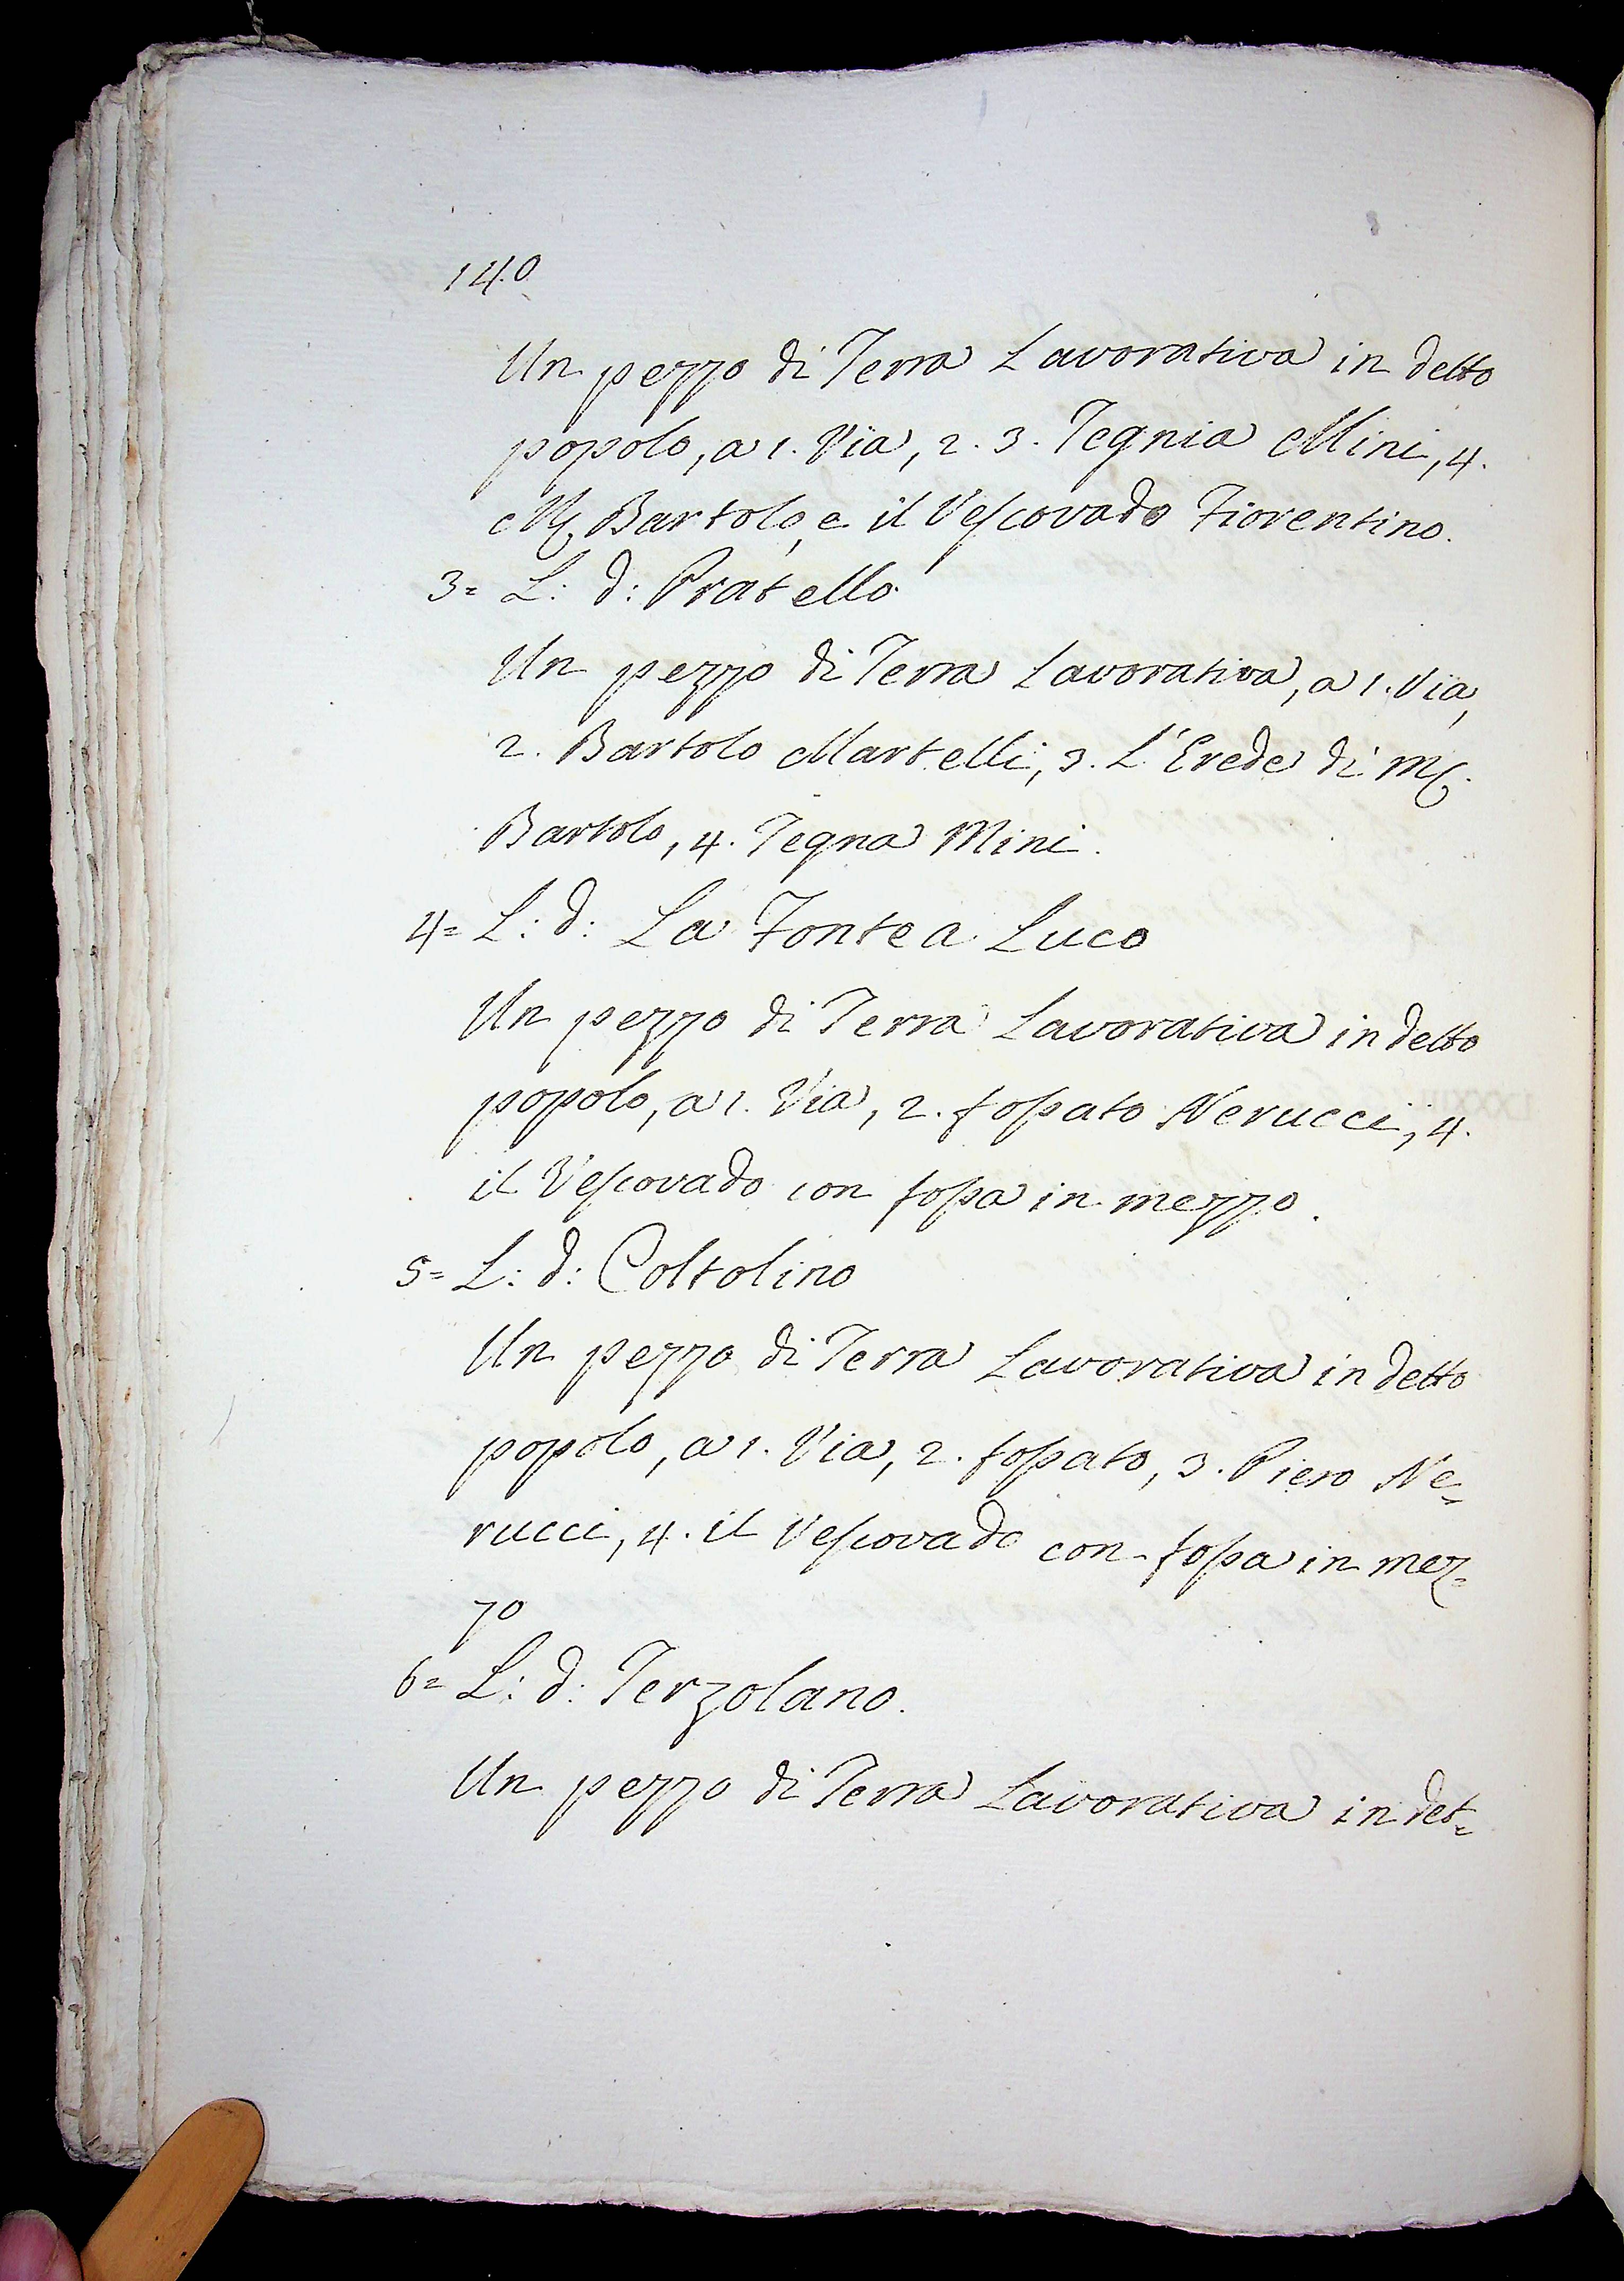 140
Un pezzo di Terra Lavorativa in detto
popolo, a 1. Via, 2. 3. Tegnia Mini, 4.
Mſ. Bartolo, e il Veſcovado Fiorentino.
3= L: d: Pratello
Un pezzo di Terra Lavorativa, a 1. Via,
2. Bartolo Martelli, 3. L'Erede di Mſ.
Bartolo, 4. Tegna Mini.
4= L: d: La Fonte a Luco
Un pezzo di Terra Lavorativa in detto
popolo, a 1. Via, 2. foſsato Nerucci, 4.
il Veſcovado con foſsa in mezzo.
5= L: d: Coltolino
Un pezzo di Terra Lavorativa in detto
popolo, a 1. Via, 2. foſsato, 3. Piero Ne=
rucci, 4. il Veſcovado con foſsa in mez=
zo
6= L: d: Terzolano.
Un pezzo di Terra Lavorativa in det=